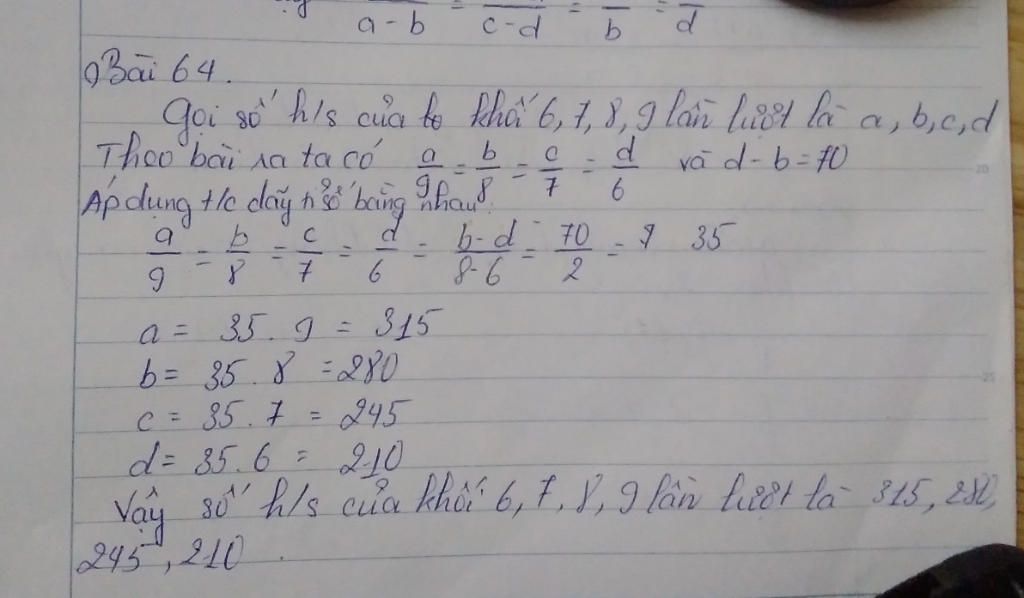 a-b = c-d = b = d
Bài 64.
Gọi số h/s của khối 6, 7, 8, 9 lần lượt là a, b, c, d
Theo bài ra ta có a/9 = b/8 = c/7 = d/6 và d-b=70
Áp dụng t/c dãy tỉ số bằng nhau
a/9 = b/8 = c/7 = d/6 = b-d/8-6 = 70/2 = 35
a = 35 . 9 = 315
b = 35 . 8 = 280
c = 35 . 7 = 245
d = 35 . 6 = 210
Vậy số h/s của khối 6, 7, 8, 9 lần lượt là 315, 280,
245, 210.